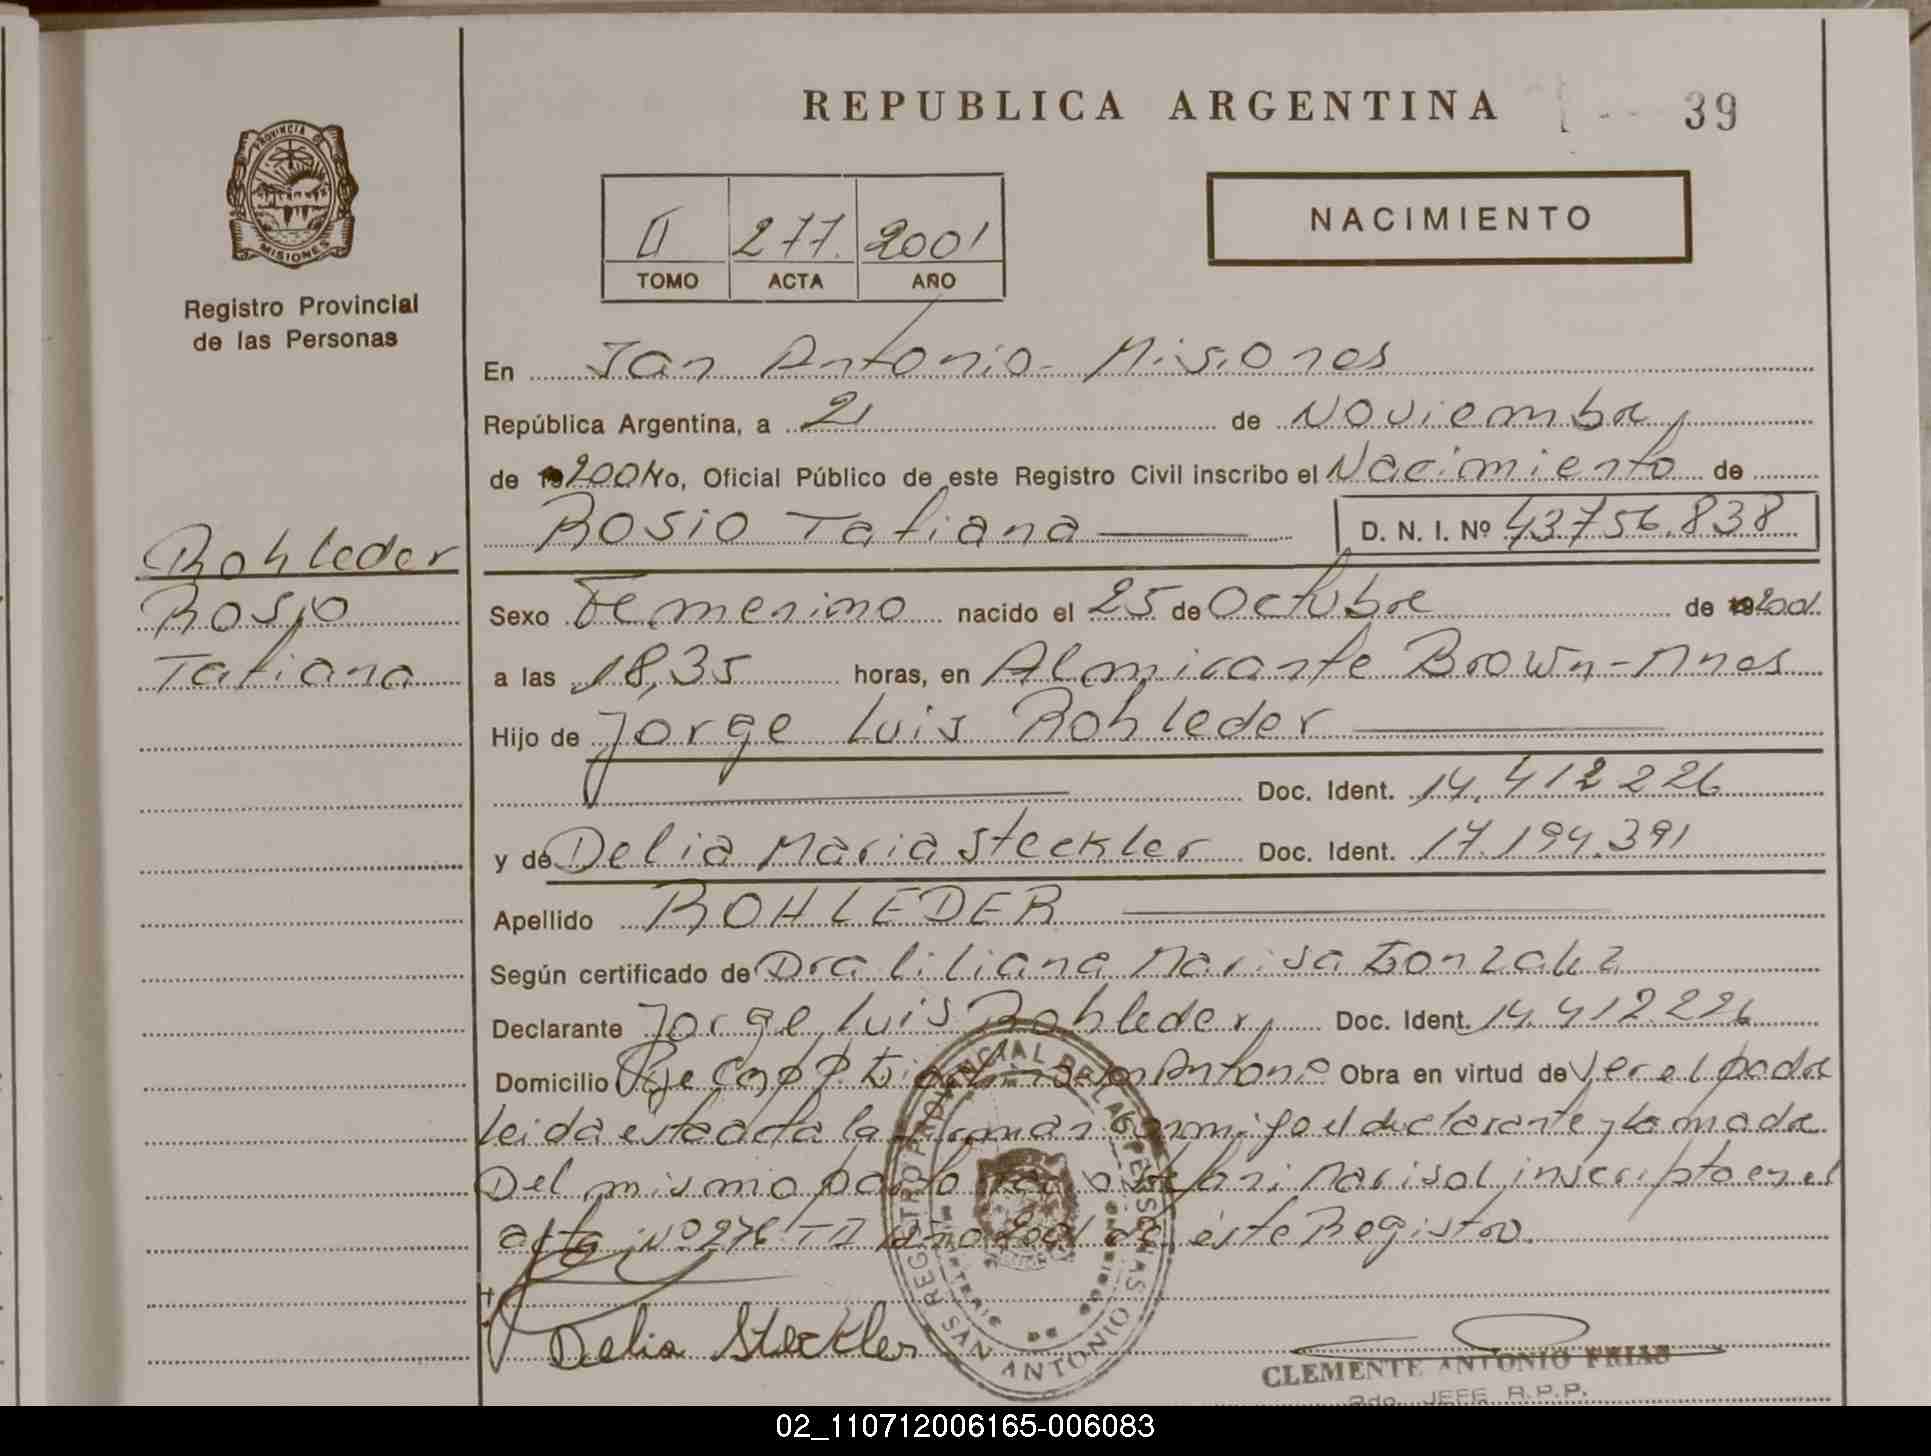 REPUBLICA ARGENTINA
39
PROVINCIA DE
MISIONES
Registro Provincial
de las Personas
II 277. 2001
TOMO ACTA AÑO
NACIMIENTO
En San Antonio - Misiones
República Argentina, a 21 de Noviembre,
de 2001 Yo, Oficial Público de este Registro Civil inscribo el Nacimiento de
Rosio Tatiana D. N. I. Nº 43756.838
Rohleder
Rosio
Tatiana
Sexo Femenino nacido el 25 de Octubre de 2001.
a las 18,35 horas, en Almirante Brown - Mnes
Hijo de Jorge Luis Rohleder
Doc. Ident. 14.412 226
y de Delia Maria Steckler Doc. Ident. 17.194.391
Apellido ROHLEDER
Según certificado de Dra Liliana Marisa Gonzalez
Declarante Jorge Luis Rohleder, Doc. Ident. 14.412.226
Domicilio San Antonio Obra en virtud de ser el padre
leida esta acta la firman conmigo el declarante y la madre
Del mismo parto nacio Marisol inscripto en el
acta Nº 276 T II año 2001 de éste Registro.
Delia Steckler
REGISTRO PROVINCIAL DE LAS PERSONAS
SAN ANTONIO
CLEMENTE ANTONIO FRIAS
JEFE R.P.P.
02_110712006165-006083